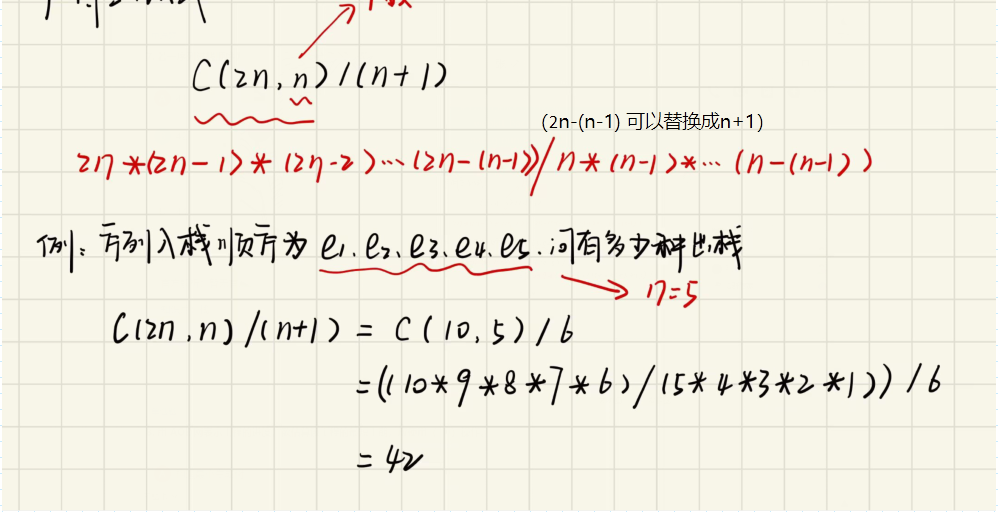 C(2n,n)/(n+1)
(2n-(n-1) 可以替换成n+1)
2n*(2n-1)*(2n-2)…(2n-(n-1))/n*(n-1)*…(n-(n-1))
例:序列入栈顺序为e1.e2、e3、e4、e5.问有多少种出栈
n=5
C(2n,n)/(n+1) = C(10,5)/6
=((10*9*8*7*6)/(5*4*3*2*1))/6
= 42